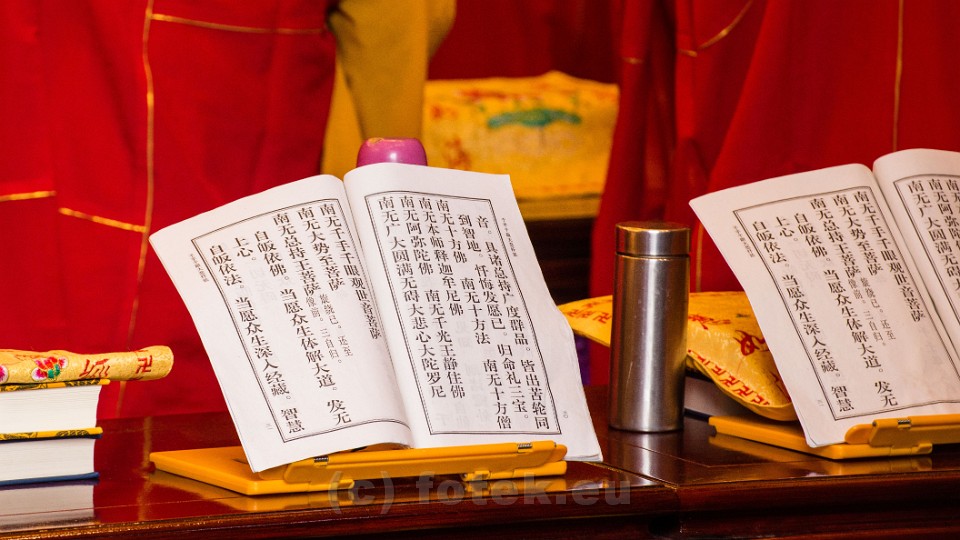 音。具诸总持广度群品。皆出苦轮同
到智地。忏悔发愿已。归命礼三宝。
南无十方佛 南无十方法 南无十方僧
南无本师释迦牟尼佛
南无阿弥陀佛 南无千光王静住佛
南无广大圆满无碍大悲心大陀罗尼
南无千手千眼观世音菩萨
南无大势至菩萨
南无总持王菩萨 旋绕已。还至像前。三自归。
自皈依佛。当愿众生体解大道。发无
上心。
自皈依法。当愿众生深入经藏。智慧
南无千手千眼观世音菩萨
南无大势至菩萨
南无总持王菩萨 旋绕已。还至像前。三自归。
自皈依佛。当愿众生体解大道。发无
上心。
自皈依法。当愿众生深入经藏。智慧
(c) fotek.eu